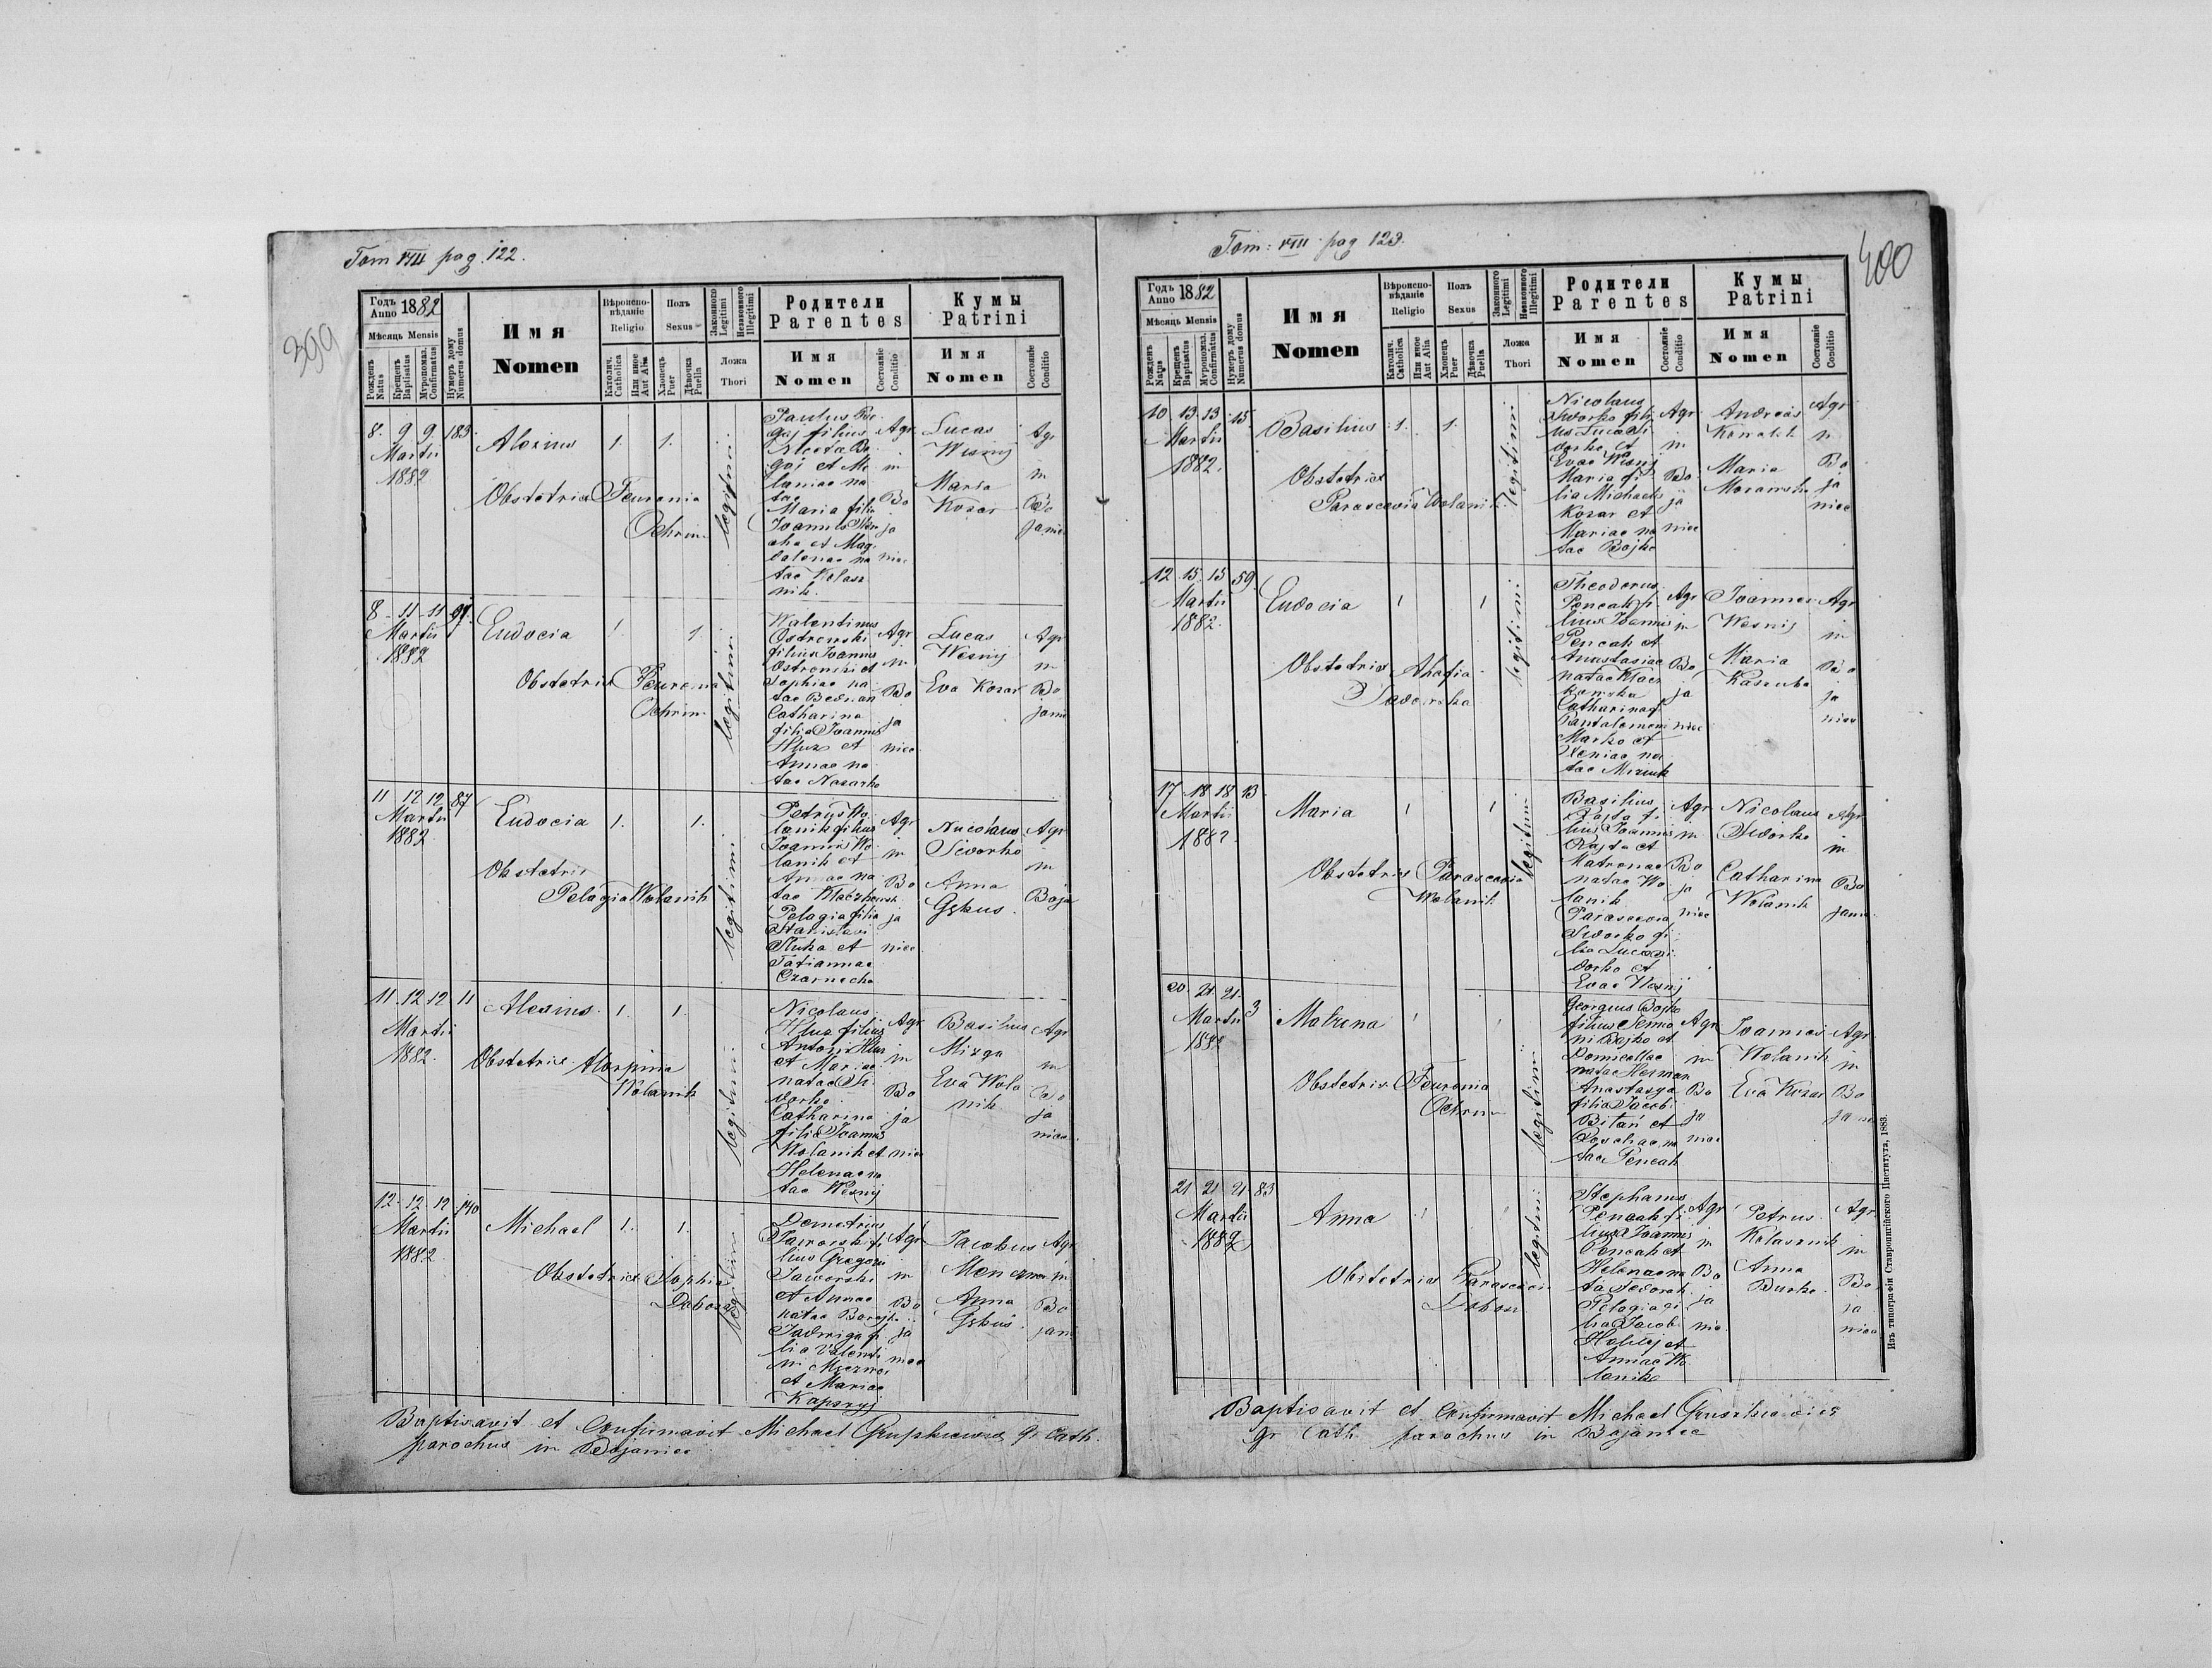 Tom VIII pag. 122.
399
Годъ Anno 1882
Мѣсяць Mensis
Рожденъ Natus
Крещенъ Baptisatus
Муропомаз. Confirmatus
Нумеръ дому Numerus domus
Имя
Nomen
Вѣроиспо-
вѣданіе
Religio
Католич. Catholica
Или иное Aut Alia
Полъ
Sexus
Хлопець Puer
Дѣвочка Puella
Законного Legitimi
Незаконного Illegitimi
Ложа
Thori
Родители
Parentes
Имя
Nomen
Состояніе Conditio
Кумы
Patrini
Имя
Nomen
Состояніе Conditio
8. 9 9. 183
Martii
1882
Alexius 1. 1.
Obstetrix Feuronia
Ochrim
legitimi
Paulus
gaj filius
et Me
laniae na
tae
Maria filia
Joannis
et Mag
dalenae na
tae Kolasz
nik.
Agr
in
Bo
ja
niec
Lucas
Wesnij
Maria
Kozar
Agr
in
Bo
janiec
8 11 11 97
Martii
1882
Eudocia 1. 1.
Obstetrix
Ochrim
legitimi
Walentinus
Ostrowski
filius Joannis
Ostrowski et
Sophiae na
tae Bednarz
Catharina
filia Joannis
Hluz et
Annae na
tae Nazarko
Agr
in
Bo
ja
niec
Lucas
Wesnij
Eva Kozar
Agr
in
Bo
janie
11 12 12 87
Martii
1882
Eudocia 1. 1.
Obstetrix
Pelagia Wolanik
legitimi
Petrus Wo
lanik filius
Joannis Wo
lanik et
Annae na
tae
Pelagia filia
Stanislavi
et
Tatiannae
Czarnecka
Agr
in
Bo
ja
niec
Nicolaus
Sidorko
Anna
Gskus
Agr
in
Boja
11 12 12 11
Martii
1882.
Alexius 1. 1.
Obstetrix
Wolanik
legitimi
Nicolaus
Hluz filius
Antoni Hluz
et Mariae
natae Si
dorko
Catharina
filia Joannis
Wolanik et
Helenae na
tae Wesnij
Agr
in
Bo
ja
niec
Basilius
Mizga
Eva Wola
nik
Agr
in
Bo
ja
niec
12 12 12 140
Martii
1882
Michael 1. 1.
Obstetrix Sophia
legitimi
Demetrius
Jaworski fi
lius Gregorii
Jaworski
et Annae
natae
Jadwiga fi
lia Valenti
ni
et Mariae
Agr
in
Bo
ja
niec
Jacobus
Anna
Gskus
Agr
in
Bo
jani
Baptisavit et Confirmavit Michael gr. Cath.
parochus in Bojaniec
Tom: VIII pag 123.
400
Годъ Anno 1882
Мѣсяць Mensis
Рожденъ Natus
Крещенъ Baptisatus
Муропомаз. Confirmatus
Нумеръ дому Numerus domus
Имя
Nomen
Вѣроиспо-
вѣданіе
Religio
Католич. Catholica
Или иное Aut Alia
Полъ
Sexus
Хлопець Puer
Дѣвочка Puella
Законного Legitimi
Незаконного Illegitimi
Ложа
Thori
Родители
Parentes
Имя
Nomen
Состояніе Conditio
Кумы
Patrini
Имя
Nomen
Состояніе Conditio
10 13 13 15
Martii
1882.
Basilius 1. 1.
Obstetrix
Parascevia Wolanik
legitimi
Nicolaus
Sidorko fili
us Lucae Si
dorko et
Evae Wesnij
Maria fi
lia Michaelis
Kozar et
Mariae na
tae Bojko
Agr
in
Bo
ja
niec
Andreas
Maria
Agr
in
Bo
ja
niec
12 15 15 59
Martii
1882.
Eudocia 1 1
Obstetrix Ahafia
legitimi
Theodorus
Pencak fi
lius Joannis
Pencak et
Anastasiae
natae
Catharina f
Pantalemoni
Marko et
Xeniae na
tae
Agr
in
Bo
ja
niec
Joannes
Wesnij
Maria
Kaszuba
Agr
in
Bo
ja
niec
17 18 18 13
Martii
1882
Maria 1 1
Obstetrix Parascevia
Wolanik
legitimi
Basilius
Rajta fi
lius Joannis
Rajta et
Matronae
natae Wo
lanik
Parascevia
Sidorko fi
lia Lucae Si
dorko et
Evae Wesnij
Agr
in
Bo
ja
niec
Nicolaus
Sidorko
Catharina
Wolanik
Agr
in
Bo
janie
20 21 21 3
Martii
1882
Matrena 1 1
Obstetrix Feuronia
Ochrim
legitimi
Georgius Bojko
filius Semio
ni Bojko et
Domicellae
natae Herman
filia Jacobi
Bitań et
tae Pencak
Agr
in
Bo
ja
niec
Joannes
Wolanik
Eva Kozar
Agr
in
Bo
janie
21 21 21 83
Martii
1882
Anna 1
Obstetrix Parascevia
legitimi
Stephanus
Pencak fi
lius Joannis
Pencak et
Helenae na
ta Fedorak
Pelagia fi
lia Jacobi
et
Annae Wo
lanik
Agr
in
Bo
ja
nie
Petrus
Kolasznik
Anna
Burko
Agr
in
Bo
ja
niec
Baptisavit et Confirmavit Michael
gr Cath. parochus in Bojaniec
Изъ типографіи Ставропигійского Института, 1883.